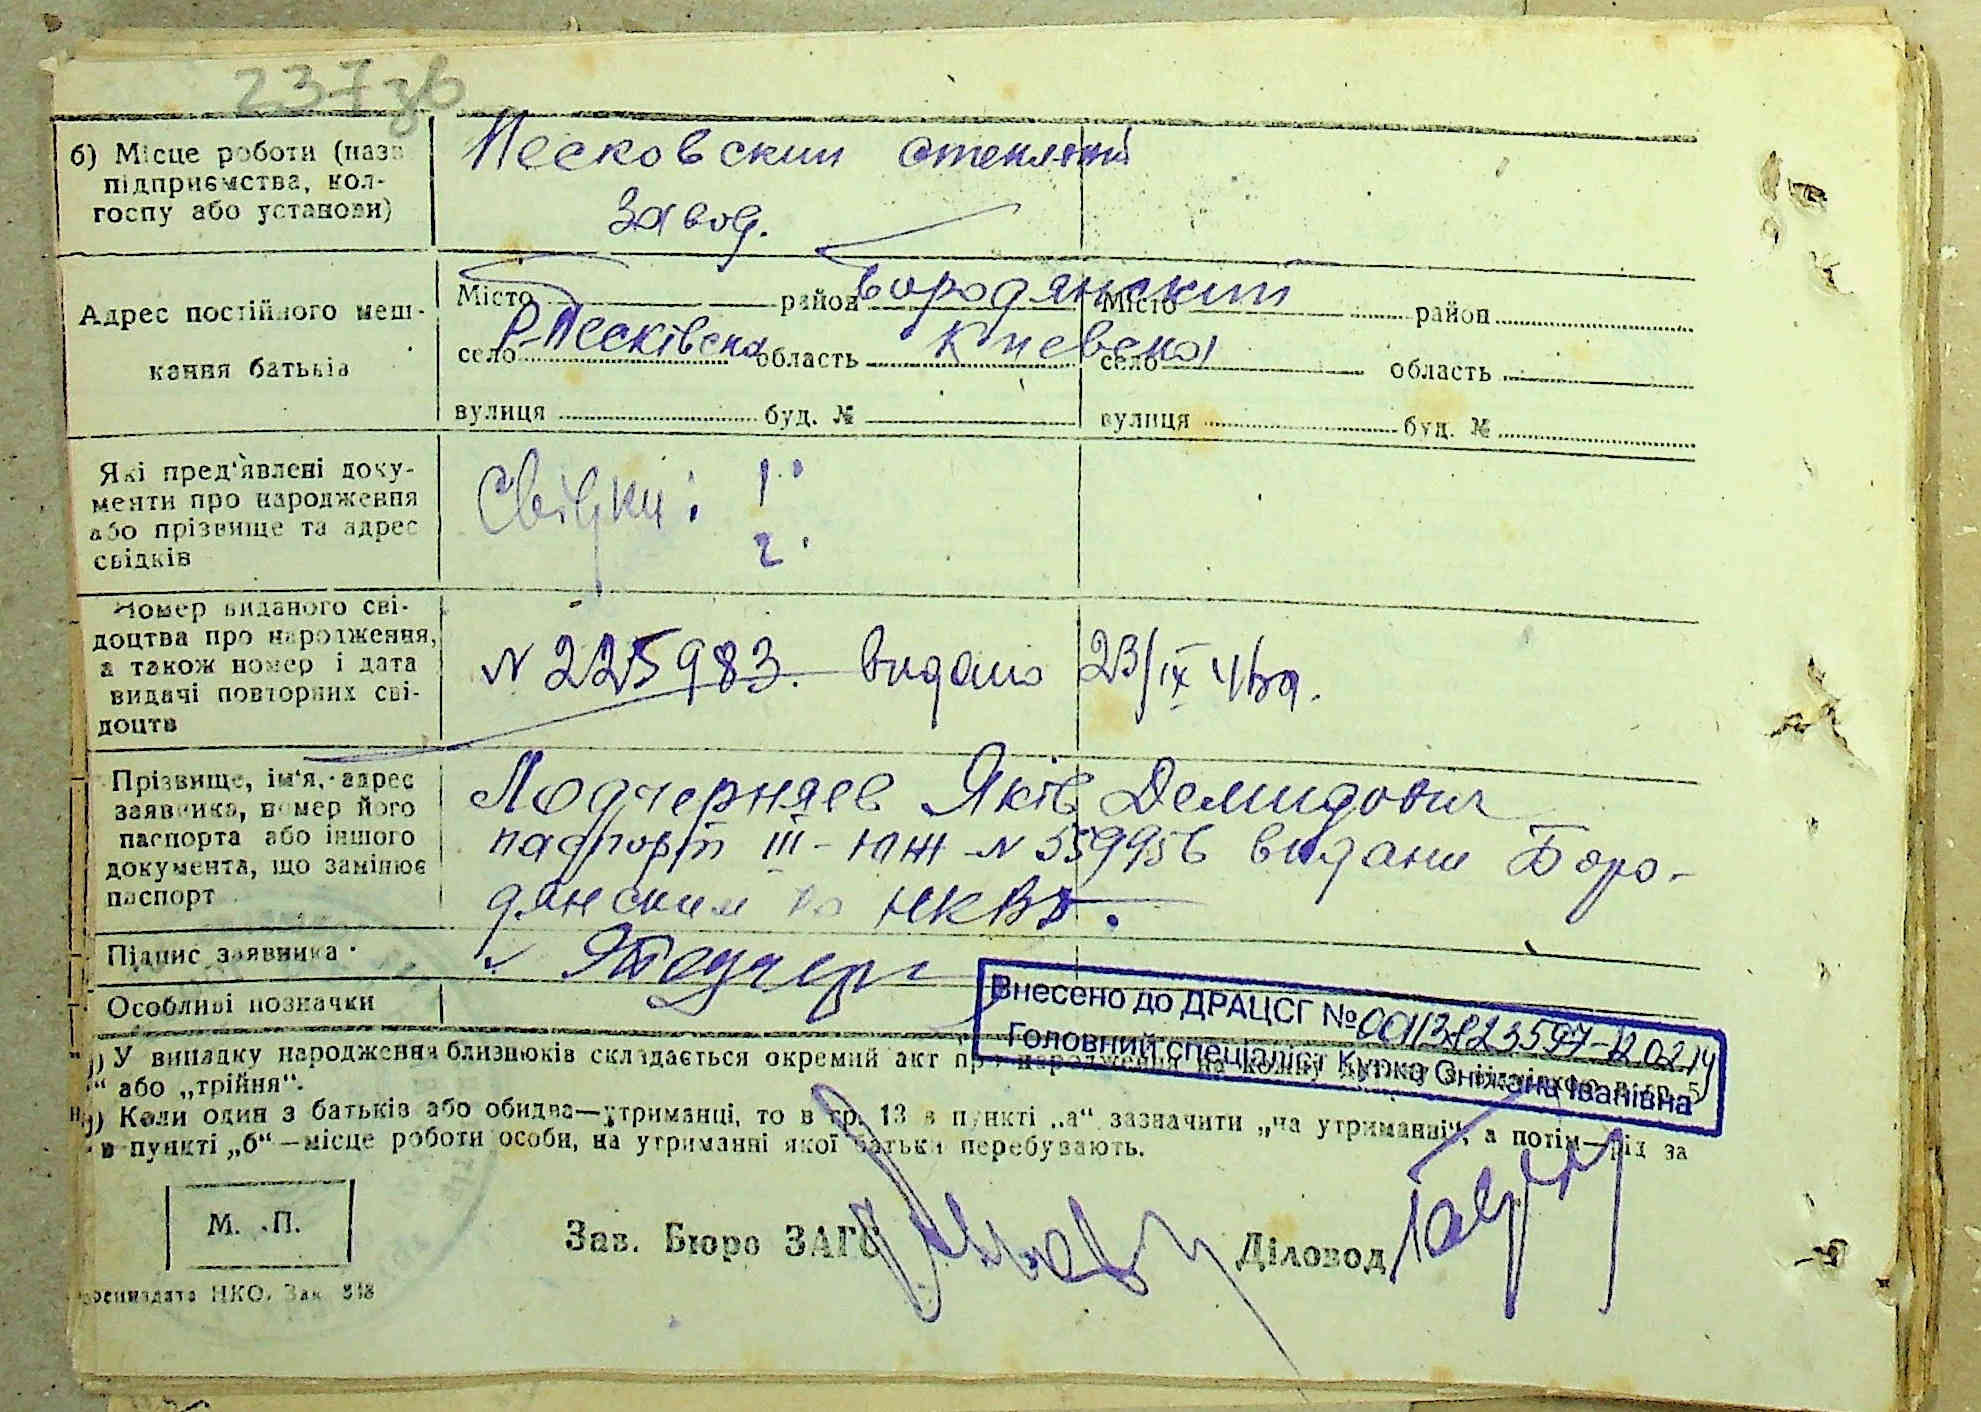 237зв
б) Місце роботи (назв
підприємства, кол-
госпу або установи)
Песковский стеклян
завод.
Адрес постійного меш-
кання батьків
Місто район Бородянский
село Р-Песківска область Киевска
вулиця буд. №
Місто район
село область
вулиця буд. №
Які пред'явлені доку-
менти про народження
або прізвище та адрес
свідків
Свідки: 1.
2.
Номер виданого сві-
доцтва про народження,
а також номер і дата
видачі повторних сві-
доцтв
N 225983. видано 23/IX
Прізвище, ім'я, адрес
заявника, номер його
паспорта або іншого
документа, що замінює
паспорт
Подчерняев Яків Демидович
паспорт III-ЮЖ-N 559956 видани Боро-
дянским НКВД.
Підпис заявника
Особливі позначки
Внесено до ДРАЦСГ №
Головний спеціаліст Курко Сніжана Іванівна
У випадку народження близнюків складається окремий акт про народження на кожну
“ або „трійня“.
Коли один з батьків або обидва—утриманці, то в гр. 13 в пункті „а“ зазначити „на утриманні“, а потім—рід за
в пункті „б“—місце роботи особи, на утриманні якої батьки перебувають.
М. П.
Зав. Бюро ЗАГС
Діловод
НКО. Зак. 348